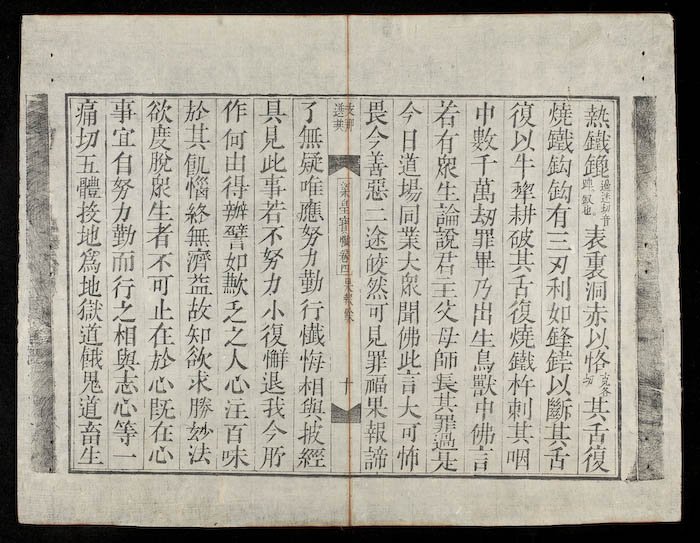 熱鐵鎞邊迷切音表裏洞赤以烙其舌復
燒鐵鈎鈎有三刃利如鋒鋩以斷其舌
復以牛犂耕破其舌復燒鐵杵刺其咽
中數千萬劫罪畢乃出生鳥獸中佛言
若有衆生論說君王父母師長其罪過是
今日道場同業大衆聞佛此言大可怖
畏今善惡二途皎然可見罪福果報諦
支那
撰述
梁皇寶懺卷四 果報餘 十
了無疑唯應努力勤行懺悔相與披經
具見此事若不努力小復懈退我今所
作何由得辦譬如歉乏之人心注百味
於其飢惱終無濟益故知欲求勝玅法
欲度脫衆生者不可止在於心旣在心
事宜自努力勤而行之相與志心等一
痛切五體投地爲地獄道餓鬼道畜生